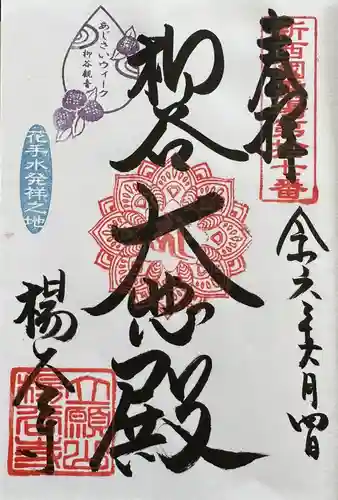 新西國霊場第十七番
奉拝
令六年六月四日
柳谷
大悲殿
楊谷寺
立願山
楊谷寺
あじさいウィーク
柳谷観音
花手水発祥之地